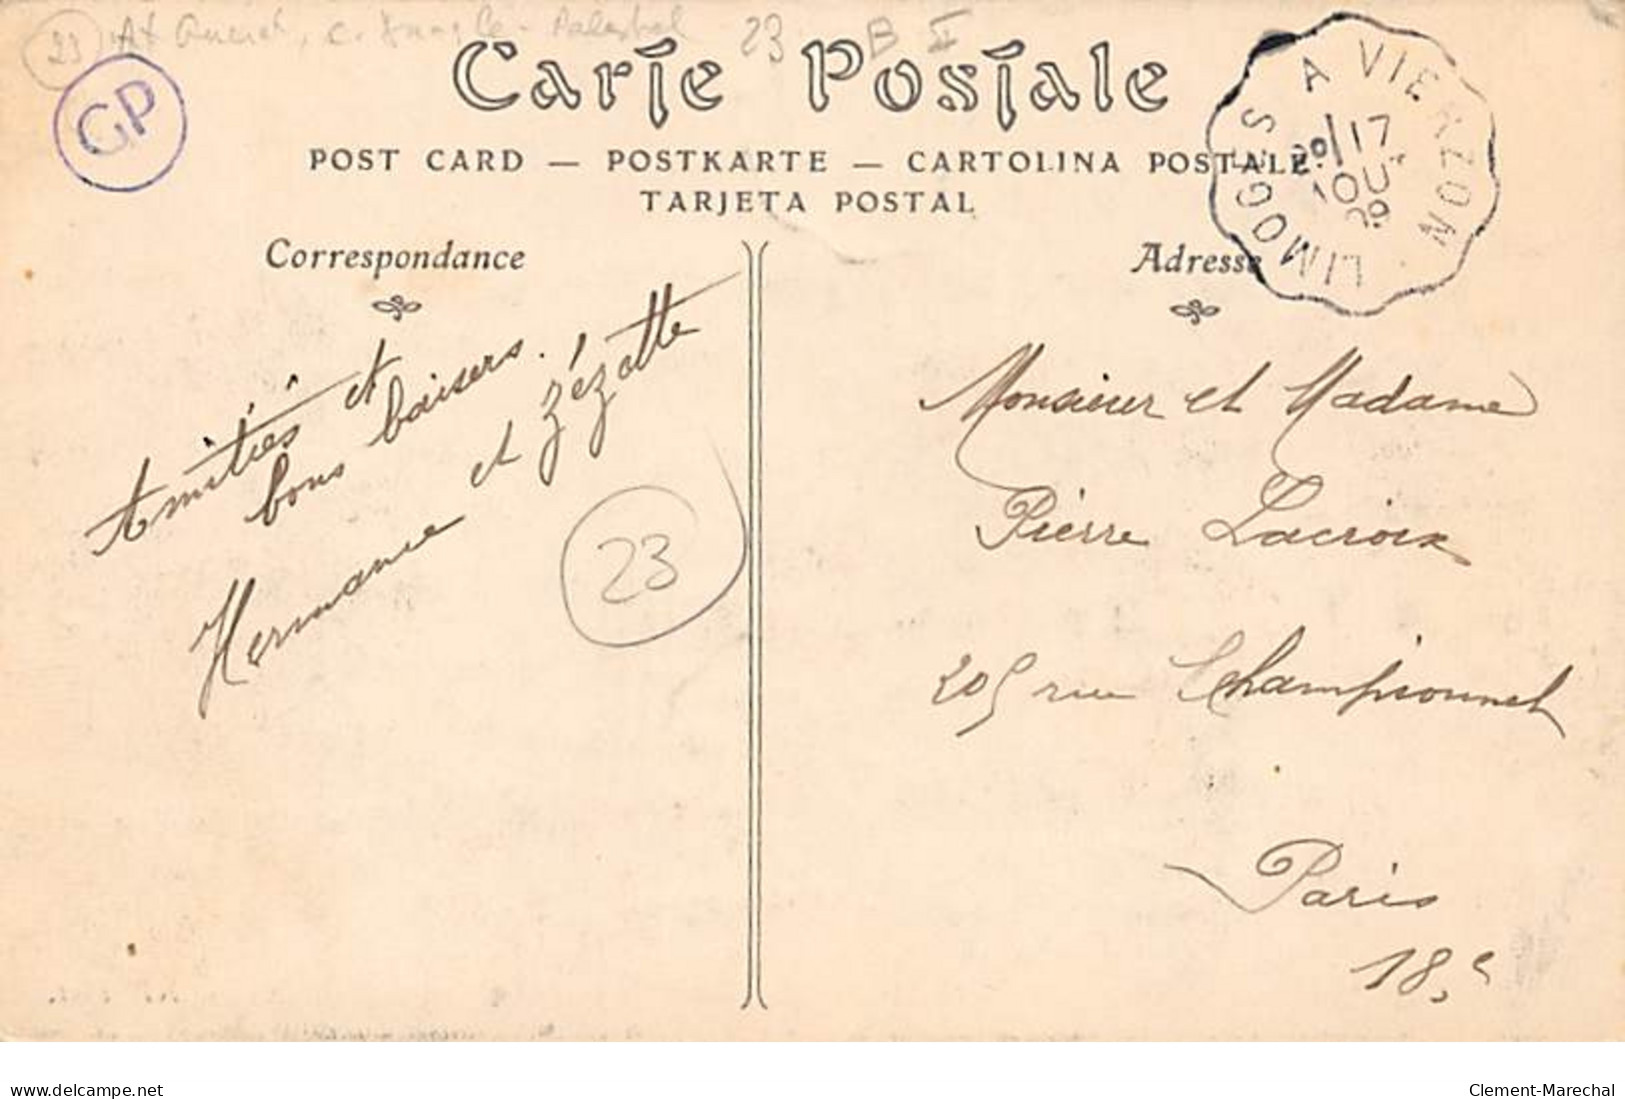 23
23
B II
GP
Carte Postale
POST CARD — POSTKARTE — CARTOLINA POSTALE
TARJETA POSTAL
LIMOGES A VIERZON
17
OU
09
Correspondance
Adresse
Amitiés et
bons baisers.
Hermance et Zézette
23
Monsieur et Madame
Pierre Lacroix
205 rue Championnet
Paris
18.e
delcampe.net
Clement-Marechal